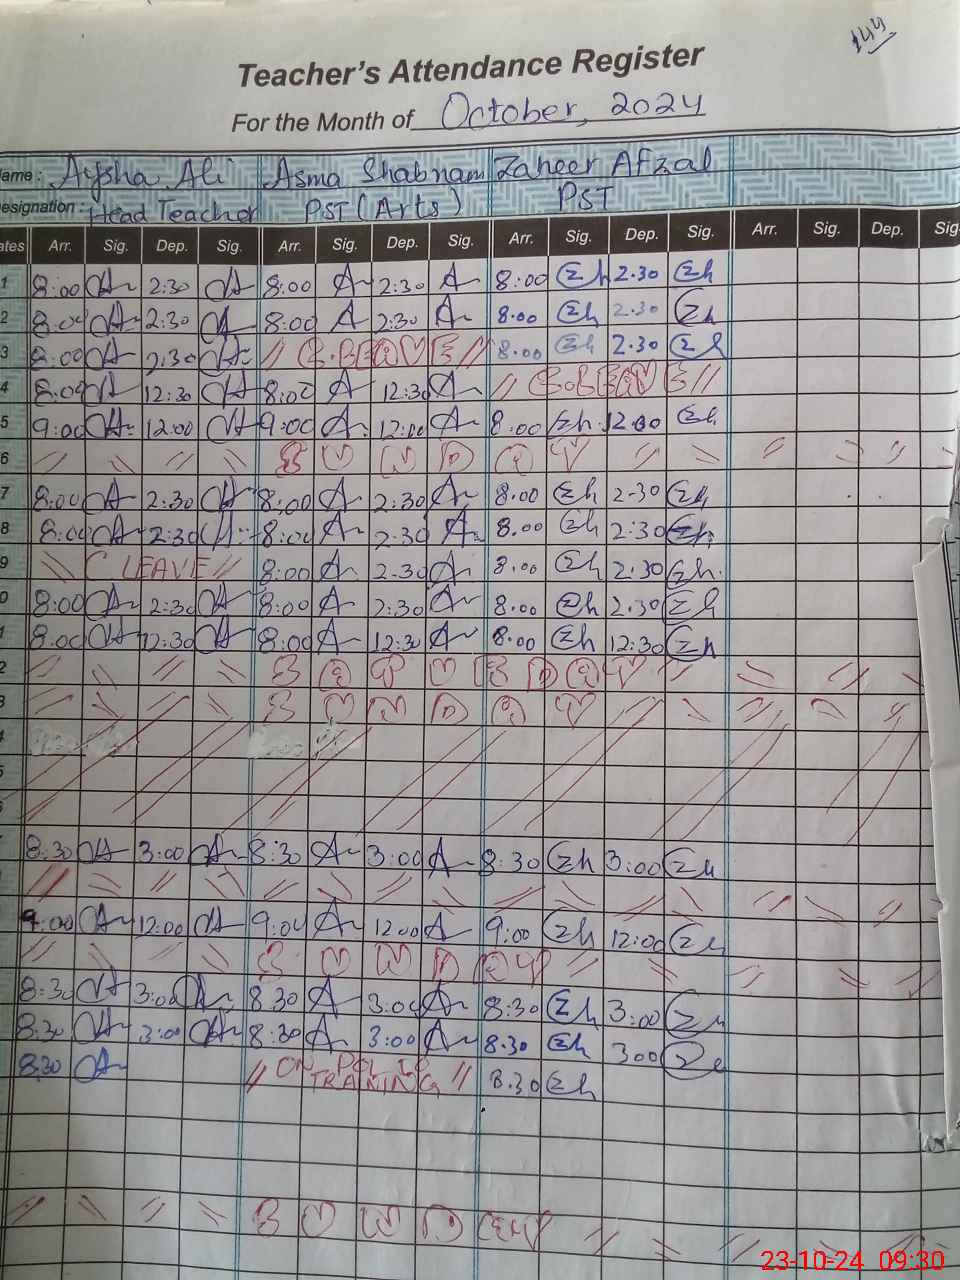 144
Teacher's Attendance Register
For the Month of October, 2024
ame : Aysha Ali Asma Shabnam Zaheer Afzal
esignation : Head Teacher PST (Arts) PST
ates Arr. Sig. Dep. Sig. Arr. Sig. Dep. Sig. Arr. Sig. Dep. Sig. Arr. Sig. Dep. Sig.
1 8:00 2:30 8:00 2:30 8:00 2.30
2 8:00 2:30 8:00 2:30 8.00 2.30
3 8:00 2:30 // C.LEAVE // 8.00 2.30
4 8:00 12:30 8:00 12:30 // C.LEAVE //
5 9:00 12:00 9:00 12:00 8.00 12.00
6 SUNDAY
7 8:00 2:30 8:00 2:30 8.00 2-30
8 8:00 2:30 8:00 2:30 8.00 2:30
9 C LEAVE // 8:00 2:30 8.00 2:30
0 8:00 2:30 8:00 2:30 8.00 2.30
1 8:00 12:30 8:00 12:30 8.00 12:30
2 SATURDAY
3 SUNDAY
4
5
8:30 3:00 8:30 3:00 8:30 3:00
9:00 12:00 9:00 12:00 9:00 12:00
SUNDAY
8:30 3:00 8:30 3:00 8:30 3:00
8:30 3:00 8:30 3:00 8.30 3:00
8:30 // ON POLIO TRAINING // 8.30
SUNDAY
23-10-24 09:30